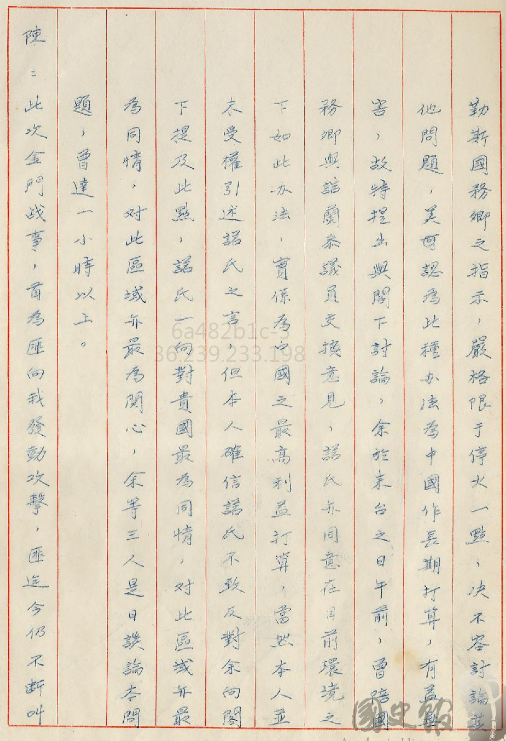 勤斯國務卿之指示,嚴格限于停火一點,决不容討論其
他問題,美方認為此種办法為中國作長期打算,有益無
害,故特提出與閣下討論,余於来台之日午前,曾陪國
務卿與諾蘭参議員交换意見,諾氏亦同意在目前環境之
下如此办法,實係為中國之最高利益打算,當然本人並
未受權引述諾氏之言,但本人確信諾氏不致反對余向閣
下提及此點,諾氏一向對貴國最為同情,对此區域亦最
為同情,对此區域亦最為関心,余等三人是日談論本問
題,曾達一小時以上。
陳:此次金門战事,首為匪向我發動攻擊,匪迄今仍不断叫
6a482b1c-3
36.239.233.198
國史館